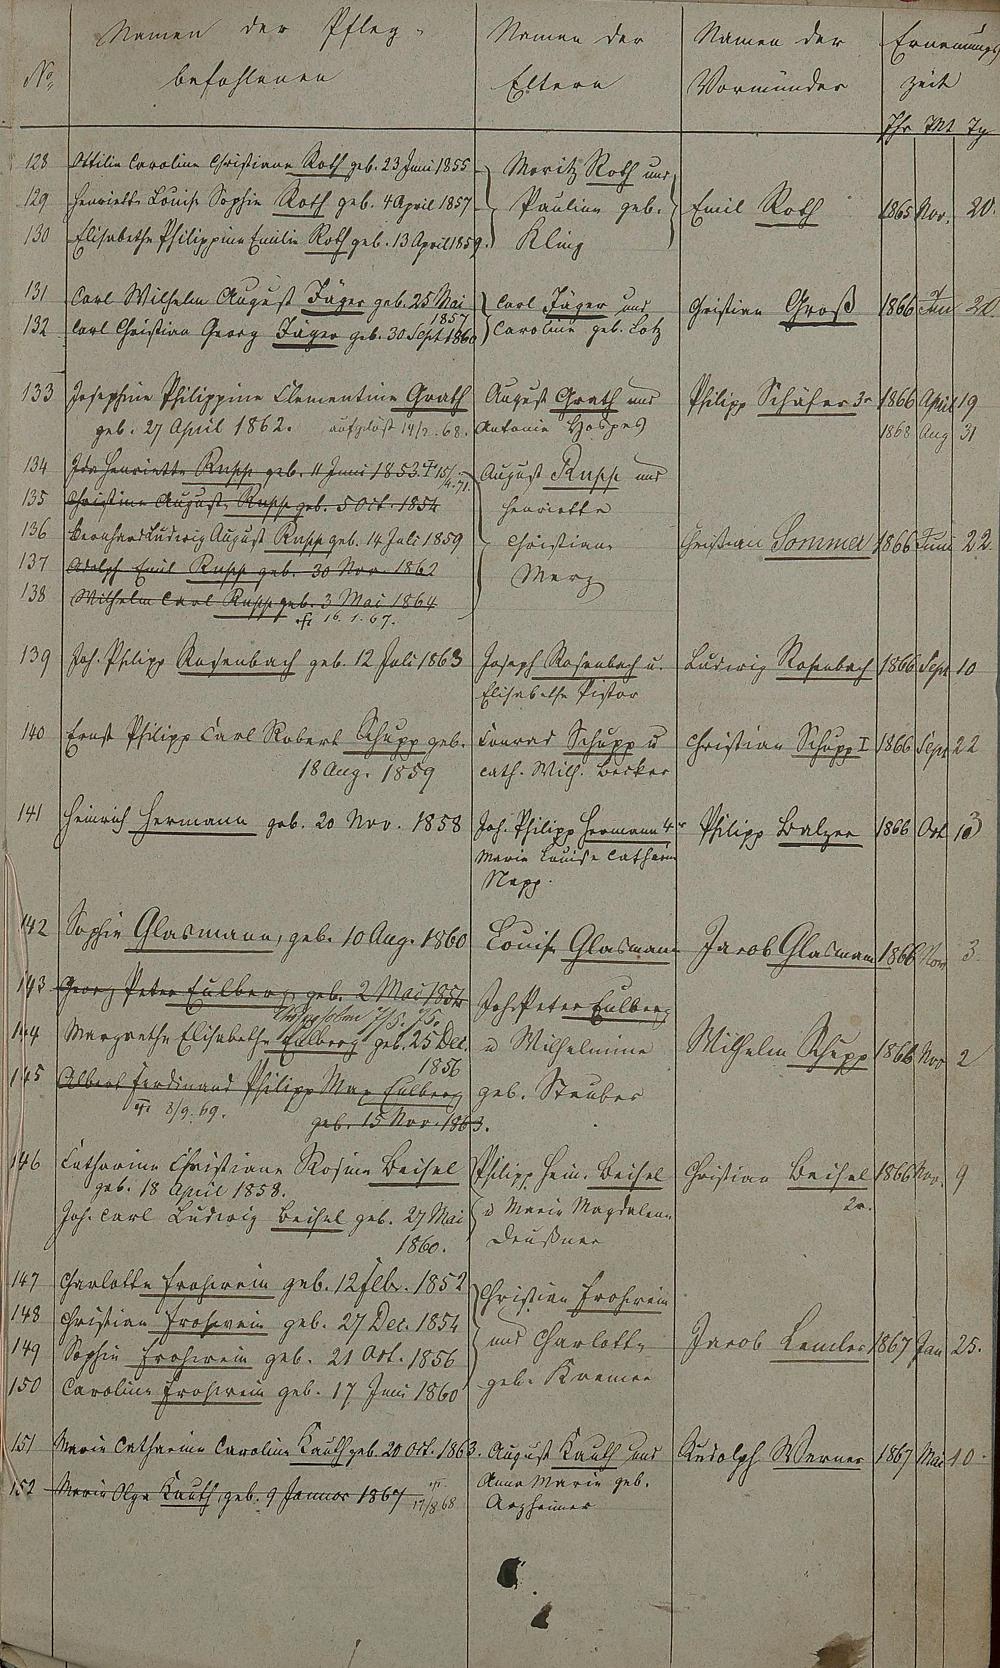 Namen der Pfleg-
befohlenen
Namen der
Eltern
Namen der
Vormünder
Ernennungs
zeit
No
Jhr Mt Tg
128 Ottilie Caroline Christiane Roth geb. 23 Juni 1855
129 Henriette Louise Sophie Roth geb. 4 April 1857
130 Elisabethe Philippine Emilie Roth geb. 13 April 1859.
Moritz Roth und
Pauline geb.
Kling
Emil Roth
1865 Nov. 20.
131 Carl Wilhelm August Jäger geb. 25 Mai
1857
132 Carl Christian Georg Jäger geb. 30 Sept 1860
Carl Jäger und
Caroline geb. Lotz
Christian Groß
1866 Jan 20.
133 Josephine Philippine Clementine Grath
geb. 27 April 1862. aufgelöst 14/2. 68.
August Grath und
Antonie Hospes
Philipp Schäfer 3r
1866 April 19
1868 Aug 31
134 Ida Henriette Rupp geb. 11 Juni 1853. † 15/4.71.
135 Christine Auguste Rupp geb. 5 Oct. 1854
136 Bernhard Ludwig August Rupp geb. 14 Juli 1859
137 Adolph Emil Rupp geb. 30 Nov. 1862
138 Wilhelm Carl Rupp geb. 3 Mai 1864
† 16. 1. 67.
August Rupp und
Henriette
Christiane
Merz
Christian Sommer
1866 Juni 22
139 Joh. Philipp Rosenbach geb. 12 Juli 1863
Joseph Rosenbach u.
Elisabethe Pistor
Ludwig Rosenbach
1866 Sept 10
140 Ernst Philipp Carl Robert Schupp geb.
18 Aug. 1859
Conrad Schupp u
Cath. Wilh. Becker
Christian Schupp I
1866 Sept 22
141 Heinrich Hermann geb. 20 Nov. 1858
Joh. Philipp Hermann 4r
Marie Louise Catharine
Napp.
Philipp Balzer
1866 Oct 13
142 Sophie Glasmann, geb. 10 Aug. 1860
Louise Glasmann
Jacob Glasmann
1866 Nov 3
143 Georg Peter Eulberg, geb. 2 Mai 1854
144 Margarethe Elisabethe Eulberg geb. 25 Dec.
1856
145 Albert Ferdinand Philipp Max Eulberg
† 8/9. 69. geb. 15 Nov. 1863.
Joh. Peter Eulberg
u Wilhelmine
geb. Steuber
Wilhelm Schupp
1866 Nov 2
146 Catharine Christiane Rosine Beisel
geb. 18 April 1858.
Joh. Carl Ludwig Beisel geb. 27 Mai
1860.
Philipp Hein. Beisel
u Marie Magdalene
Deußner
Christian Beisel
2r.
1866 Nov. 9
147 Charlotte Frohwein geb. 12 Febr. 1852
148 Christian Frohwein geb. 27 Dec. 1854
149 Sophie Frohwein geb. 21 Oct. 1856
150 Caroline Frohwein geb. 17 Juni 1860
Christian Frohwein
und Charlotte
geb. Kramer
Jacob Lemler
1867 Jan 25.
151 Marie Catharine Caroline Kauth geb. 20 Oct. 1863.
152 Marie Olga Kauth, geb. 9 Januar 1867 † 17/8 68
August Kauth und
Anna Marie geb.
Arzheimer
Rudolph Werner
1867 Mai 10.